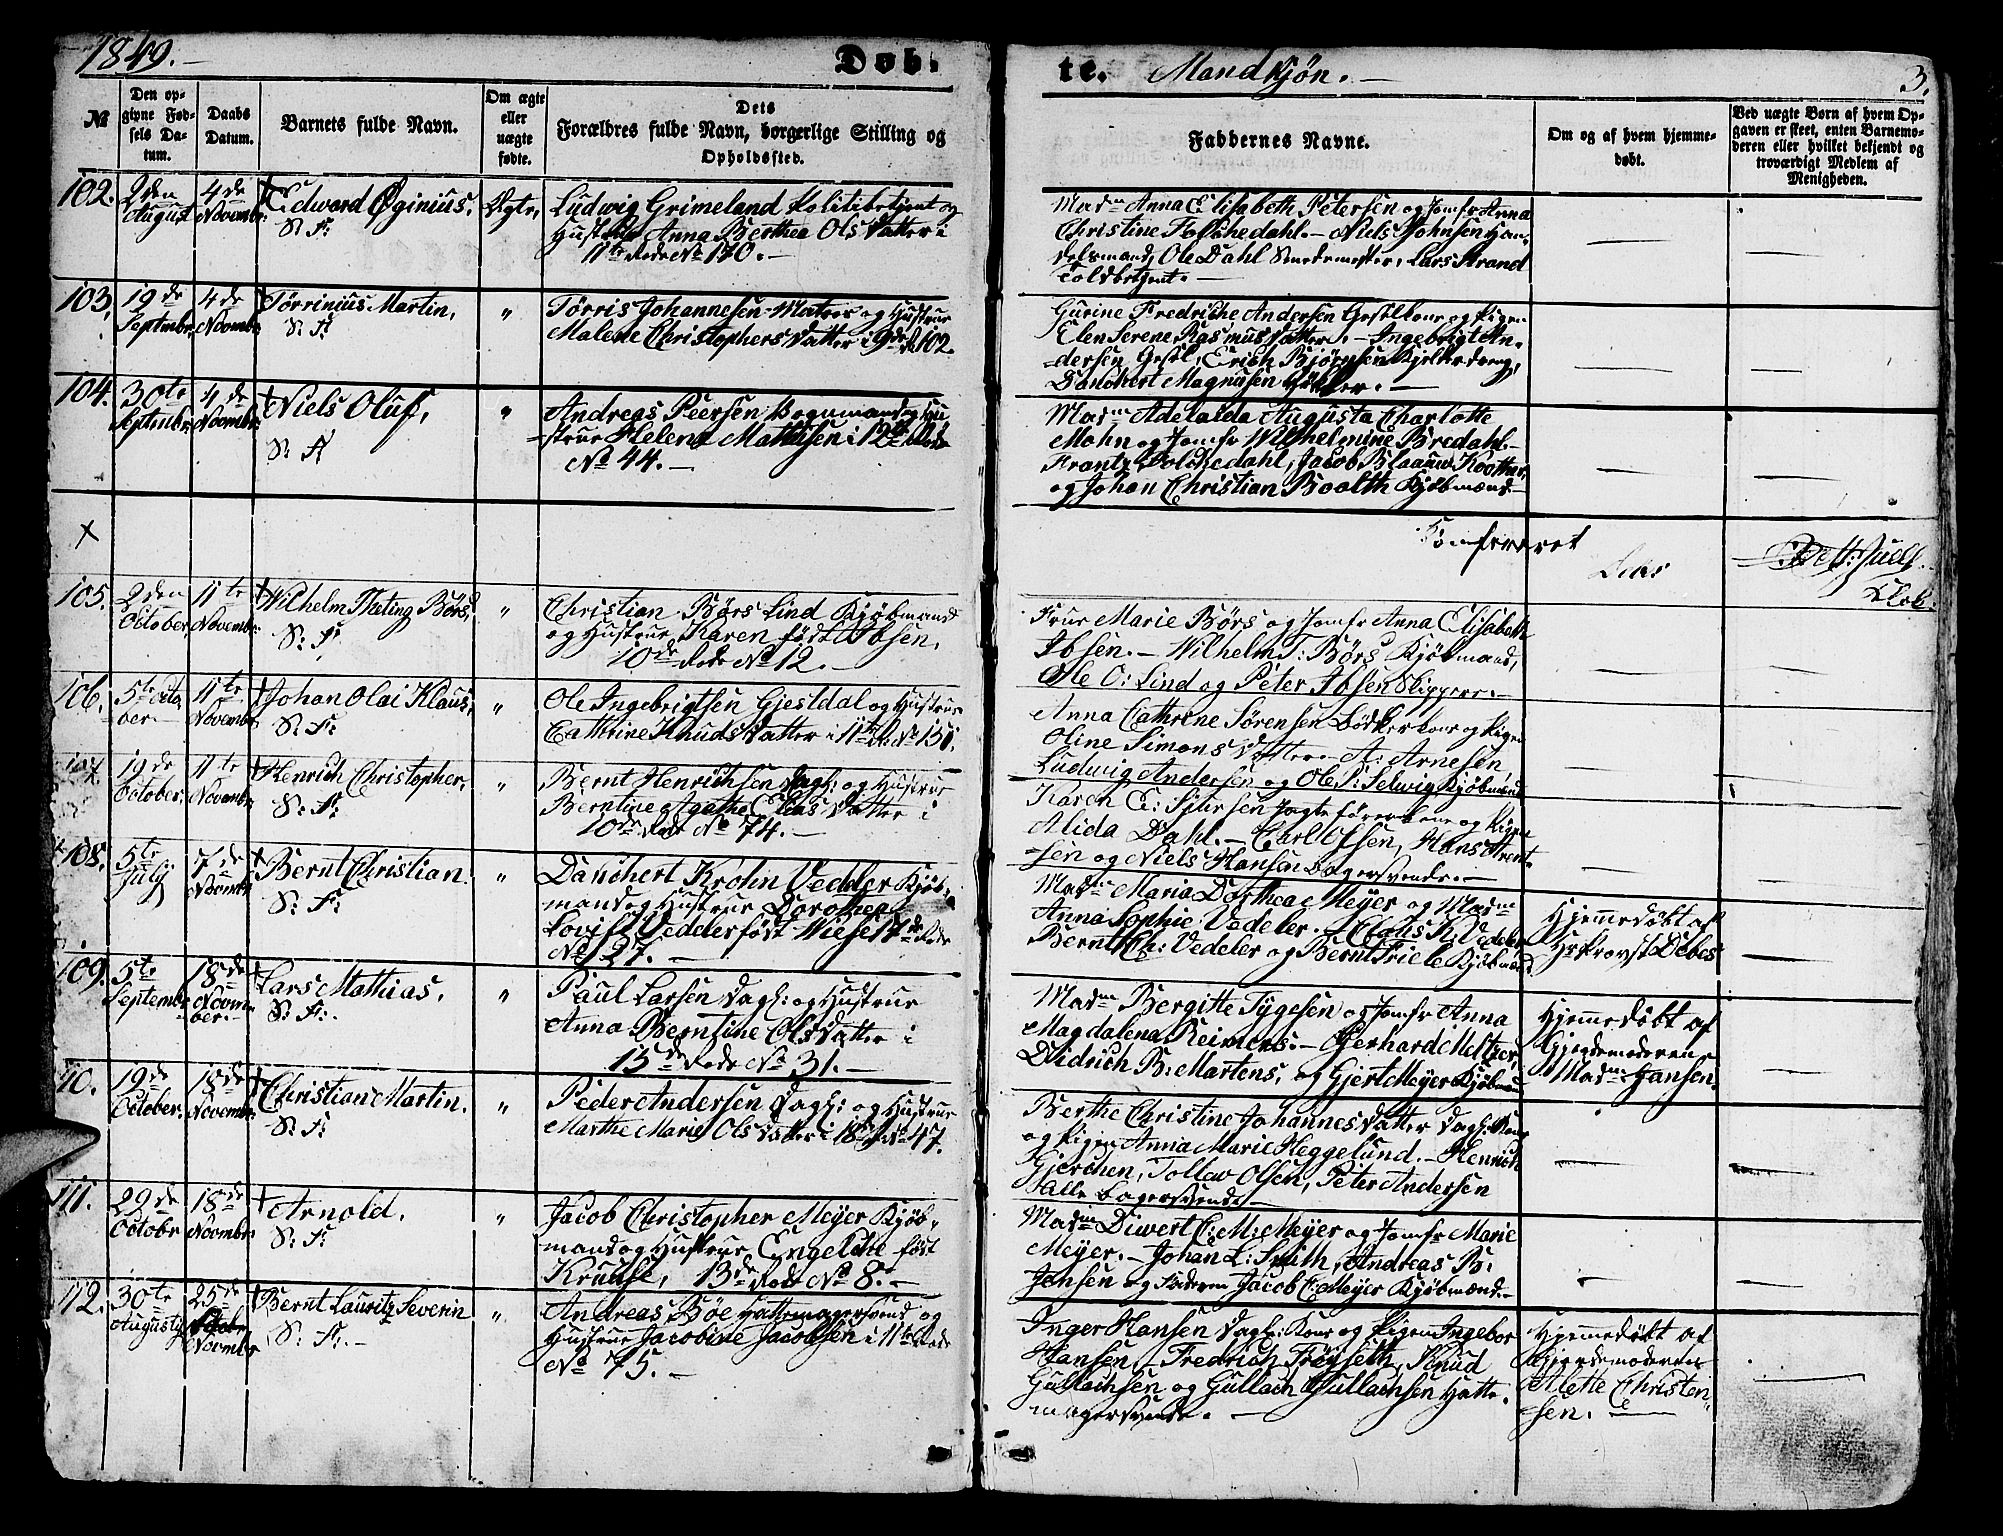 1849.- Døb-
te. Mandkjøn.- 3.
№
Den op-
givne Fød-
sels Da-
tum.
Daabs
Datum.
Barnets fulde Navn.
Om ægte
eller
uægte
fødte.
Dets
Forældres fulde Navn, borgerlige Stilling og
Opholdssted.
Faddernes Navne.
Om og af hvem hjemme-
døbt.
Ved uægte Børn af hvem Op-
gaven er skeet, enten Barnemo-
deren eller hvilket bekjendt og
troværdigt Medlem af
Menigheden.
102. 2den August 4de Novembr. Edward Øginius. Ægte,
S: F:
Ludwig Grimeland Politibetjent og
Hustrue Anna Berthea Olsdatter i
11te Rode No 170.-
Madme Anna Elisabeth Petersen og Jomfr Anna
Christine Foldhedahl.- Niels Johnsen Han-
delsmand, Ole Dahl Smedemester, Lars Strand
Toldbetjent.-
103. 19de Septembr. 4de Novembr. Tørrinius Martin, "
S: F:
Tørris Johannesen Matros og Hustrue
Malene Christophersdatter i 9de R. 102.
Gurine Fredriche Andersen Gesellkone og Pigen
Elen Serene Rasmusdatter.- Ingebrigt An-
dersen Gesel, Erich Bjørnsen
Danchert Magnusen
104. 30te Septembr. 4de Novembr. Niels Oluf, "
S: F:
Andreas Peersen Vognmand og Hu-
strue Helene Mathisen i 12te Rode
No 44.-
Madme Adelaida Augusta Charlotte
Mohn og Jomfr Wilhelmine Bredahl.-
Frantz Dolchedahl, Jacob Blaauw Kootter,
og Johan Christian Booith Kjøbmænd.-
X
Confereret
Juell
Klok.
105. 2den October, 11te Novembr. Wilhelm Fleting Børs, "
S: F:
Christian Børs Lind Kjøbmand
og Hustrue Karen født Ibsen,
10de Rode No 12.-
Frue Marie Børs og Jomfr Anna Elisabeth
Ibsen.- Wilhelm F: Børs Kjøbmand,
Ole O: Lind og Peter Ibsen Skippere.-
106. 5te Octo- ber.- 11te Novembr Johan Olai Klaus, "
S: F:
Ole Ingebrigtsen Gjestdal og Hustrue
Cathrine Knudsdatter i 11te R: No 131.
Anna Cathrine Sørensen Bødkerkone og Pigen
Oline Simonsdatter.- A: Arnesen
Ludwig Andersen og Ole P: Selwig Kjøbmænd
107. 19de October. 11te Novembr. Henrich Christopher, "
S: F:
Bernt Henrichsen Dagl: og Hustrue
Berntine Agathe Eliasdatter i
10de Rode No 74.-
Karen E: Sjursen Jagteførerkone og Pigen
Alida Dahl.- Carl Olsen, Hans Arent-
sen og Niels Hansen Bagersvende.-
108. 5te July 7de Novembr Bernt Christian. "
S: F:
Danchert Krohn Vedeler Kjøb-
mand og Hustrue Dorothea
Lovise Vedeler født Wiese 17de Rode
No 27.-
Madme Maria Dorthea Meyer og Madme
Anna Sophie Vedeler.- Claus K: Vedeler
Bernt Ch: Vedeler og Bernt Friele Kjøbmænd
Hjemmedøbt af
Hr Provst Debes
109. 5te Septembr 18de Novem- ber.- Lars Mathias. "
S: F:-
Paul Larsen Dagl: og Hustrue
Anna Berntine Olsdatter i
13de Rode No 31.-
Madme Bergitte Tygesen og Jomfr Anna
Magdalena Reimers.- Gerhard Meltzer,
Didrich B: Martens, og Gjert Meyer Kjøbmænd
Hjemmedøbt af
Gjordemoderen
Madme Jansen.
110. 19de October. 18de Novembr. Christian Martin. "
S: F:
Peder Andersen Dagl: og Hustrue
Marthe Marie Olsdatter i 18de R. No 47.
Berthe Christine Johannesdatter Dagl: Kone
og Pigen Anna Marie Heggelund.- Henrich
Gjerchen, Tollew Olsen, Peter Andersen
alle Bagersvende
111. 29de October 18de Novembr Arnold. "
S: F:
Jacob Christopher Meyer Kjøb-
mand og Hustrue Engelche født
Kruuse, 13de Rode No 8.-
Madme Diwert C: M: Meyer og Jomfr Marie
Meyer.- Johan L: Smith, Andreas B:
Jensen og Faderen Jacob C: Meyer Kjøbmænd.-
112. 30te August 25de Novembr Bernt Lauritz Severin "
S: F:-
Andreas Bøe Hattemagersvend og
Hustrue Jacobine Jacobsen i 11te Rode
No 75.-
Inger Hansen Dagl: Kone og Pigen Ingebor
Hansen.- Fredrich Frøyseth, Knud
Gullachsen og Gullach Gullachsen Hatte-
magersvende.-
Hjemmedøbt af
Gjordemoderen
Alette Christen-
sen.